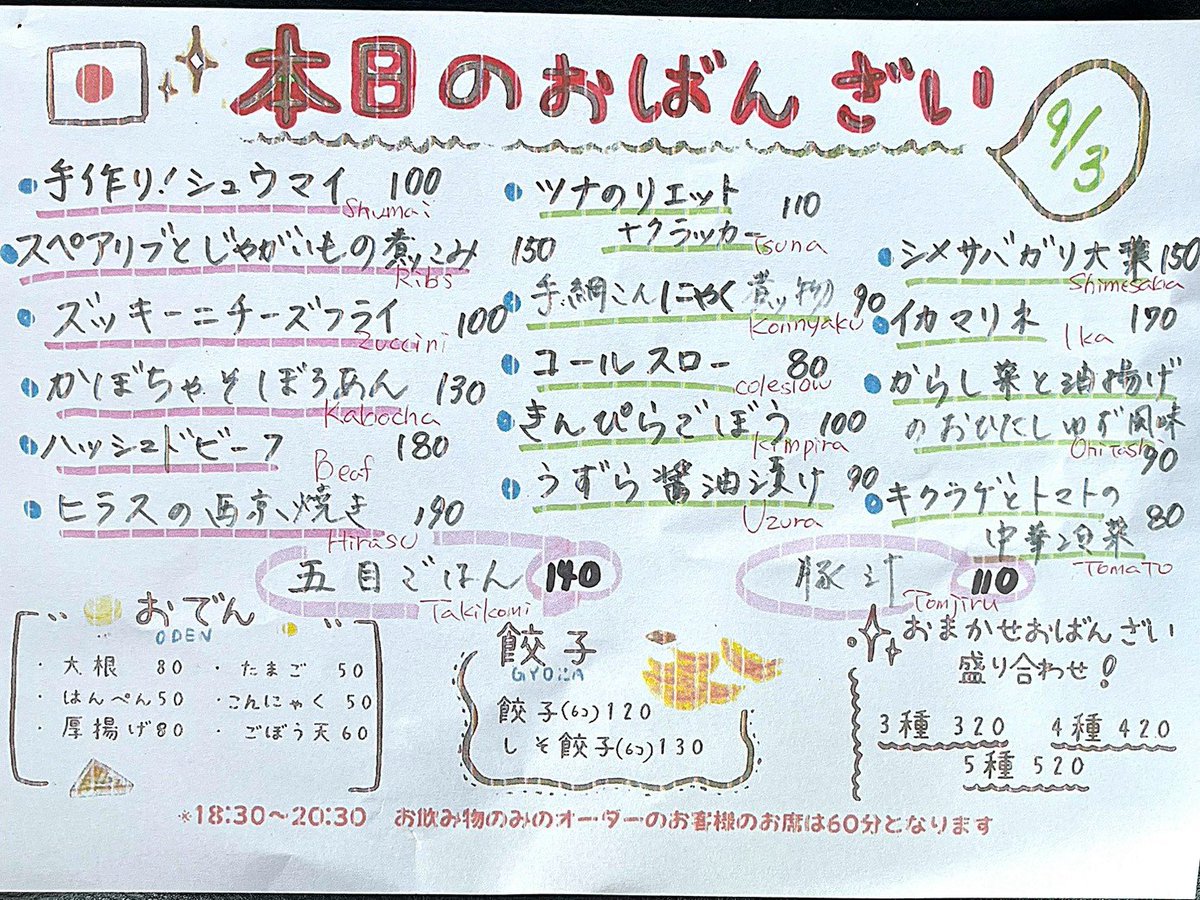 本日のおばんざい
9/3
手作り!シュウマイ 100
Shumai
スペアリブとじゃがいもの煮っこみ 150
Ribs
ズッキーニチーズフライ 100
Zuccini
かぼちゃそぼろあん 130
Kabocha
ハッシュドビーフ 180
Beaf
ヒラスの西京焼き 190
Hirasu
ツナのリエット 110
+クラッカー
Tsuna
手綱こんにゃく煮物 90
Konnyaku
コールスロー 80
coleslow
きんぴらごぼう 100
Kimpira
うずら醤油漬け 90
Uzura
シメサバガリ大葉 150
Shimesaba
イカマリネ 170
Ika
からし菜と油揚げ
のおひたしゆず風味
Ohitashi
90
キクラゲとトマトの
中華冷菜 80
Tomato
五目ごはん 140
Takikomi
豚汁 110
Tomjiru
おでん
ODEN
・大根 80 ・たまご 50
・はんぺん50 ・こんにゃく 50
・厚揚げ80 ・ごぼう天60
餃子
GYOZA
餃子(6コ)120
しそ餃子(6コ)130
おまかせおばんざい
盛り合わせ!
3種 320 4種 420
5種 520
※18:30～20:30 お飲み物のみのオーダーのお客様のお席は60分となります